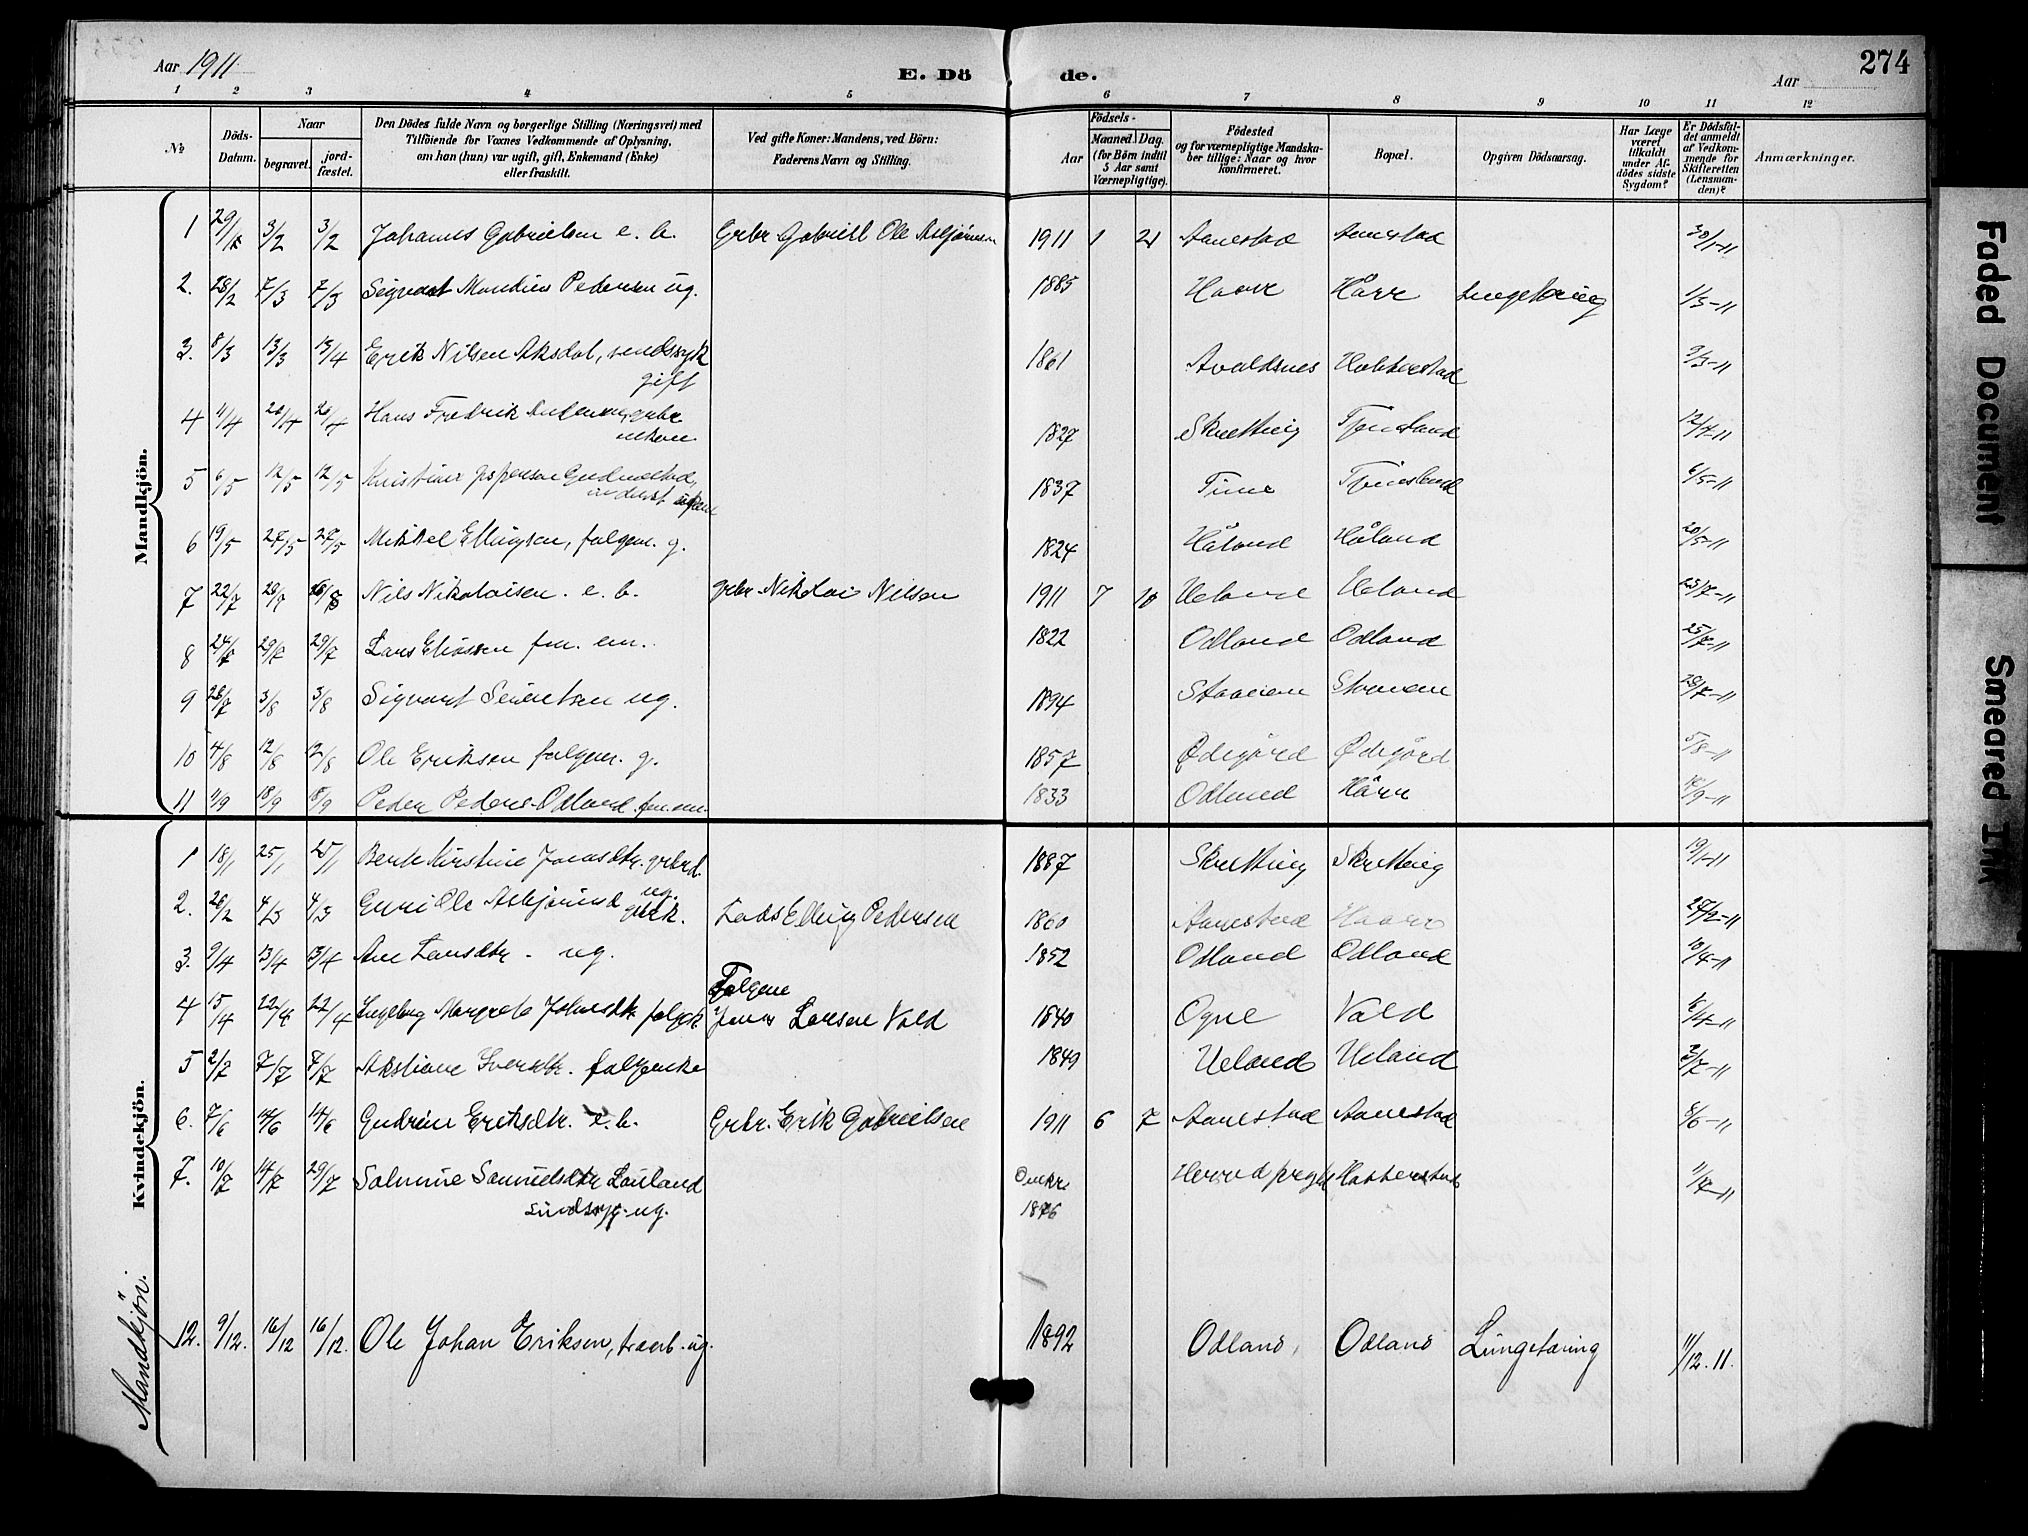 Aar 1911
E. Dö de.
Aar
274
1 2 3 4 5 6 7 8 9 10 11 12
№
Döds-Datum.
Naar
begravet.
jord-fæstet.
Den Dödes fulde Navn og borgerlige Stilling (Næringsvei) med
Tilföiende for Voxnes Vedkommende af Oplysning,
om han (hun) var ugift, gift, Enkemand (Enke)
eller fraskilt.
Ved gifte Koner: Mandens, ved Börn:
Faderens Navn og Stilling.
Födsels-
Aar
Maaned. Dag.
(for Börn indtil
5 Aar samt
Værnepligtige).
Födested
og for værnepligtige Mandska-
ber tillige: Naar og hvor
konfirmeret.
Bopæl.
Opgiven Dödsaarsag.
Har Læge
været
tilkaldt
under Af-
dödes sidste
Sygdom?
Er Dödsfal-
det anmeldt
af Vedkom-
mende for
Skifteretten
(Lensman-
den)?
Anmærkninger.
Mandkjön.
1 29/1 3/2 3/2 Johannes Gabrielsen e. b. Grbr Gabriel Ole Asbjørnsen 1911 1 21 Aanestad Aanestad 30/1-11
2. 28/2 7/3 7/3 Sigvart Mandius Pedersen ug. 1885 Haarr Hårr Lungetæring 1/3-11
3. 8/3 13/3 13/4 Erik Nilsen Aksdal, sendssyk 1861 Avaldsnes Hobberstad 9/3-11
gift
4 11/4 20/4 20/4 Hans Fredrik grbr 1827 Skretting Tjensland 12/4-11
5 6/5 12/5 12/5 Kristian Jespersen Gudmestad, 1837 Time Tjensland 6/5-11
6 19/5 27/5 27/5 Mikkel Ellingsen, folgem. g. 1824 Håland Håland 20/5-11
7 22/7 28/7 Nils Nikolaisen. e. b. grbr. Nikolai Nilsen 1911 7 10 Ueland Ueland 23/7-11
8 24/7 29/7 29/7 Lars Eliassen fm. em. 1822 Odland Odland 25/7-11
9 28/7 3/8 3/8 Sigvart ug. 1894 28/7-11
10 4/8 12/8 12/8 Ole Eriksen folgem. g. 1857 Ødegård Ødegård 5/8-11
11 11/9 18/9 18/9 Peder Pedersen Odland fm. em. 1833 Odland Hårr 12/9-11
Kvindekjön.
1 18/1 25/1 25/1 Berte Kirstine Jonasdtr. grbrd. 1887 Skretting Skretting 19/1-11
ug.
2. 26/2 4/3 4/3 Guri Ole gbrk. Lods Elling Pedersen 1860 Aanestad Haarr 27/2-11
3. 9/4 13/4 13/4 Ane Larsdtr. ug. 1852 Odland Odland 10/4-11
Folgem
4 15/4 22/4 22/4 Ingeborg Margrete folgek. Jonas Larsen Vold 1840 Ogne Vold 16/4-11
5 2/7 7/7 7/7 Akstiane Sverdtr. folgenke 1849 Ueland Ueland 3/7-11
6. 7/6 14/6 14/6 Gudrun Eriksdtr. e. b. Grbr. Erik Gabrielsen 1911 6 7 Aanestad Aanestad 8/6-11
7. 10/7 14/7 29/7 Salmine Samuelsdtr Lauland Omkr. Hobberstad 11/7-11
sindssyg. ug. 1876
Mandkjön.
12. 9/12. 16/12 16/12. Ole Johan Eriksen, ug. 1892 Odland, Odland Lungetæring 11/12.11.
Faded Document
Smeared Ink